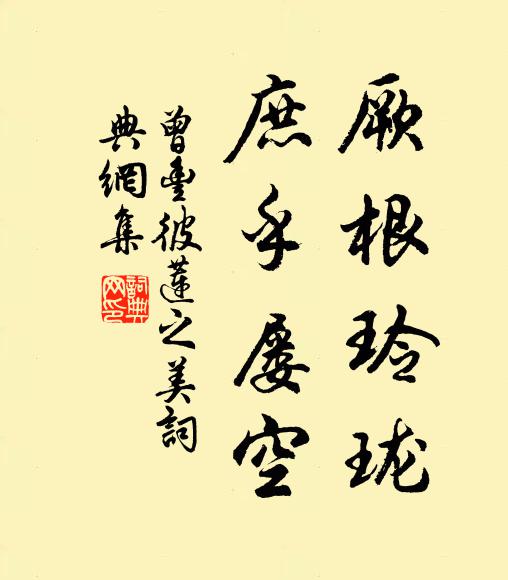 厥根玲珑
庶乎屡空
曾丰彼莲之美詞
典網集
詞典
网印